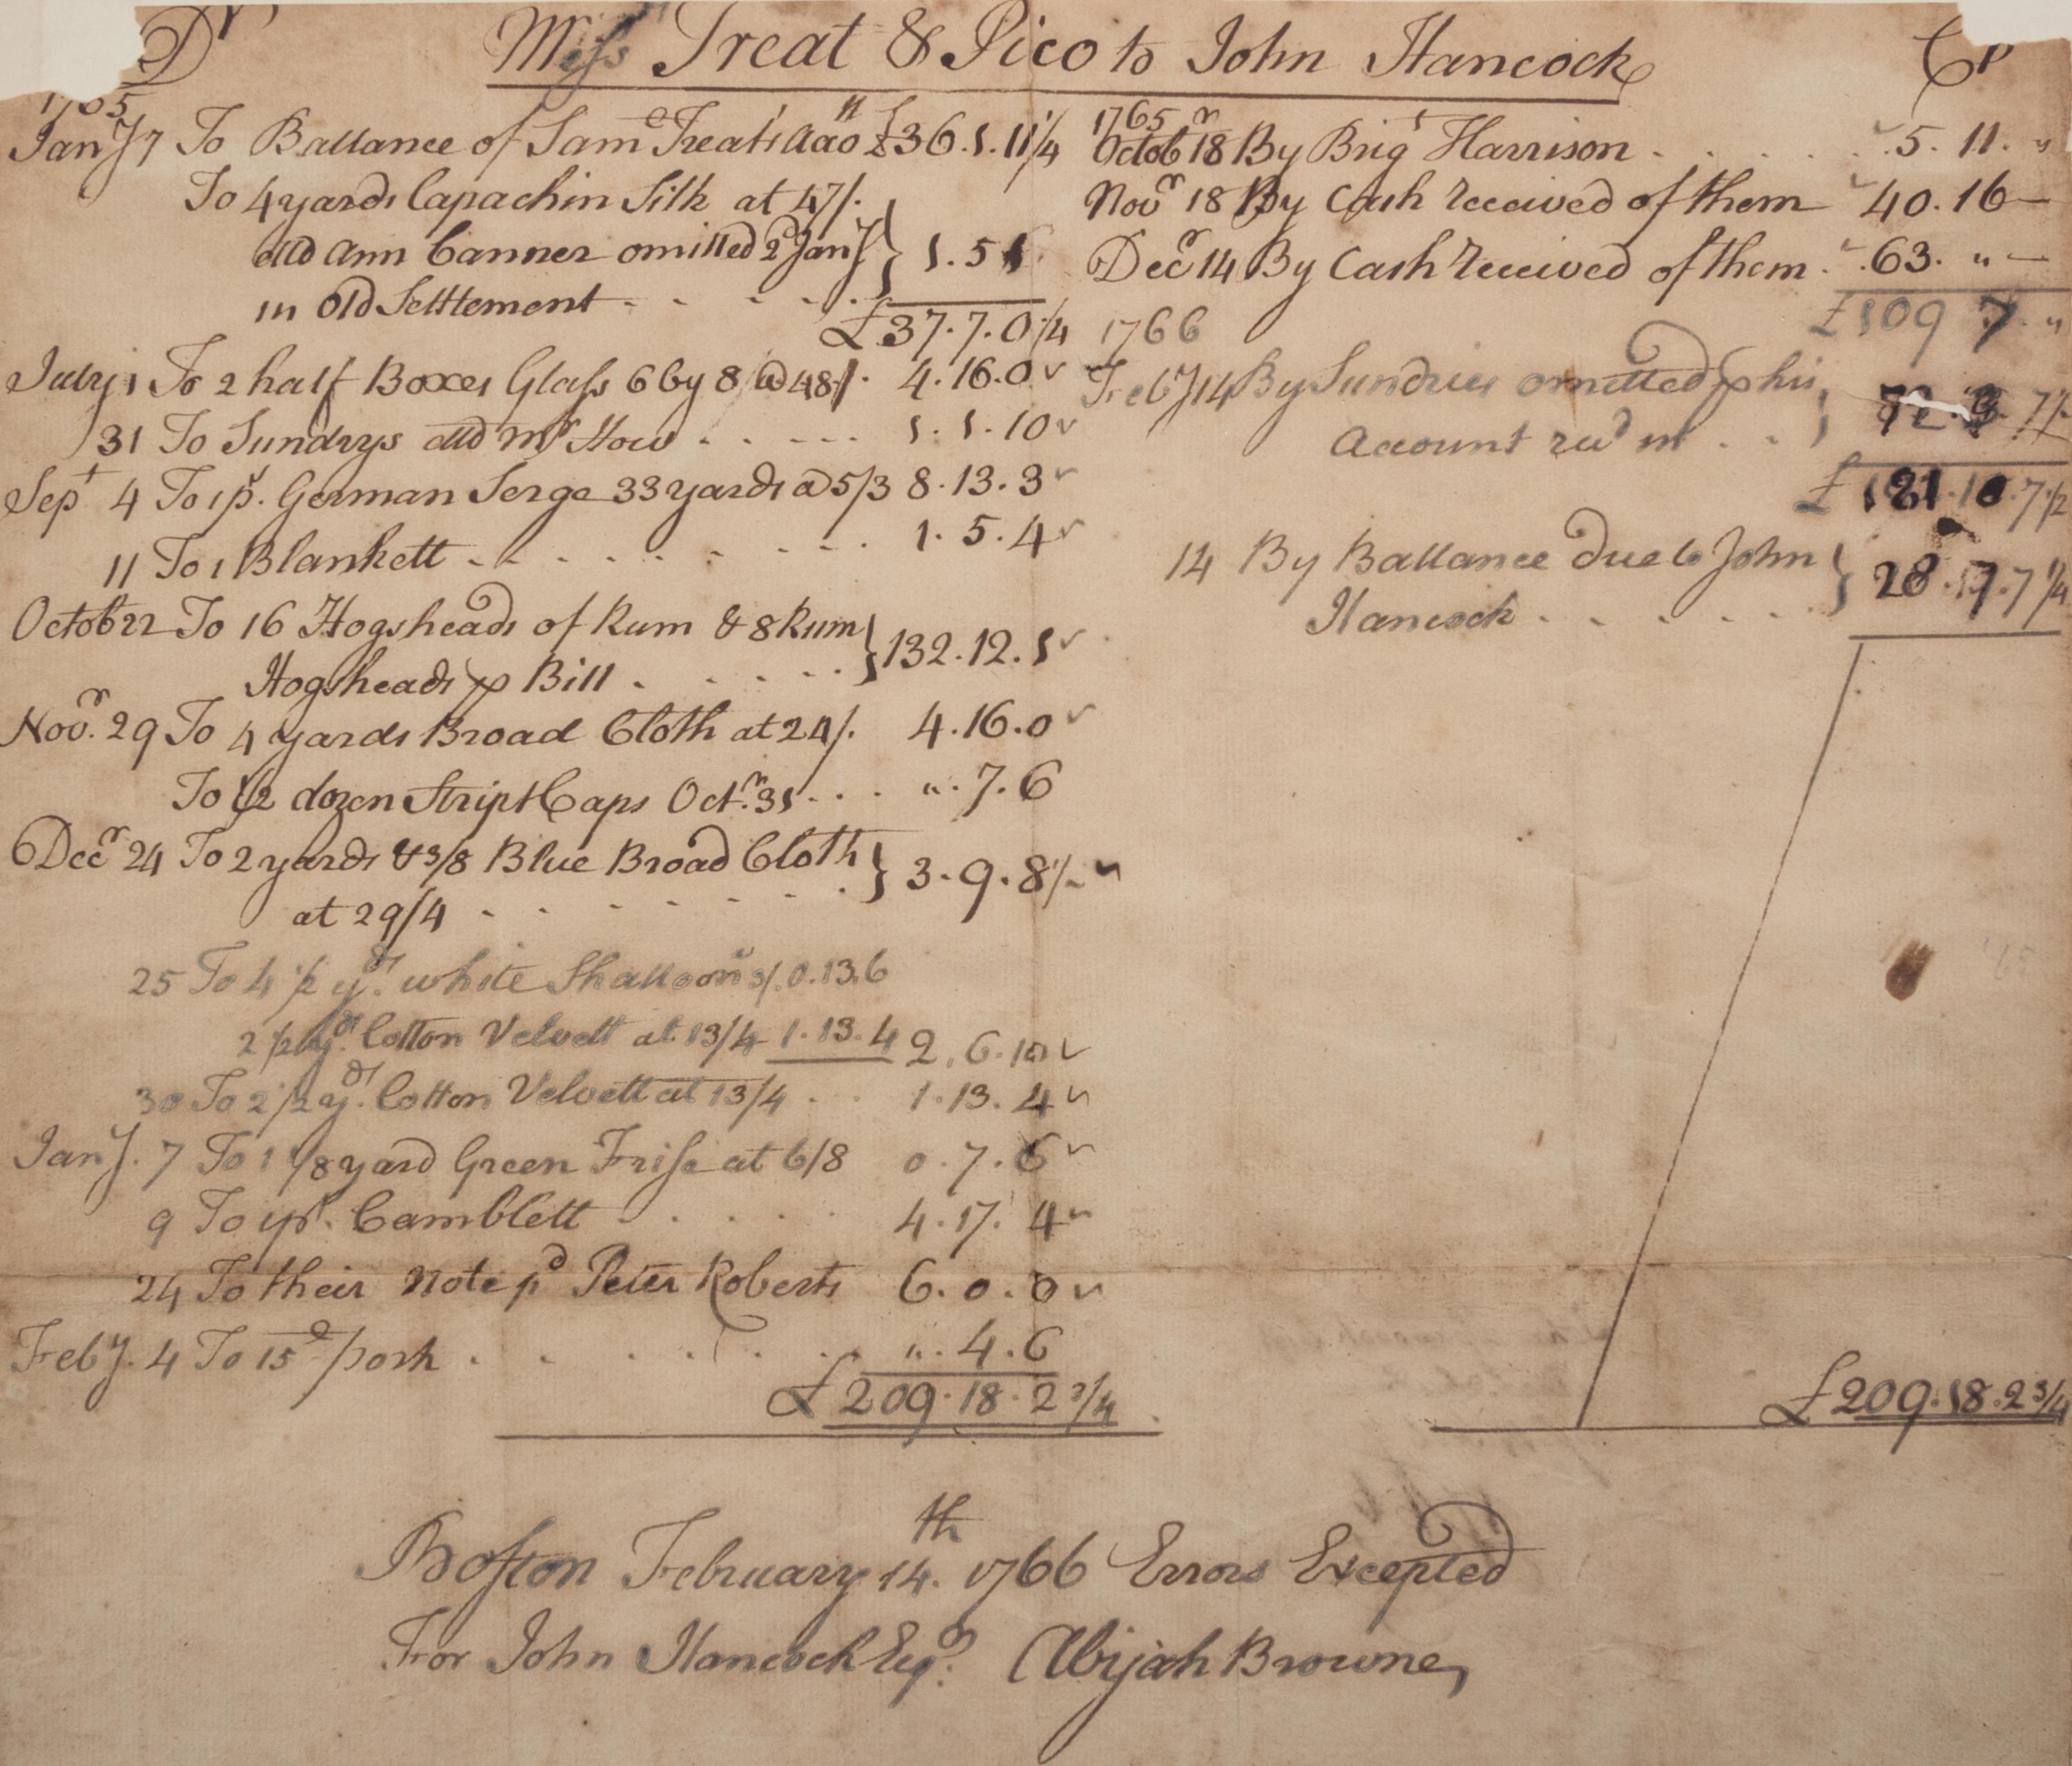 Dr Mess Treat & Pico to John Hancock Cr
1765
Jany 7 To Ballance of Saml Treats Acco £36.1.11 1/4
To 4 yards Capachin Silk at 47/.
dld Ann Canner omitted 2d Jany } 1.5.1
in Old Settlement - - - -
£37.7.0 1/4
July 1 To 2 half Boxes Glass 6 by 8 @ 48/. 4.16.0
31 To Sundrys dld Mr How - - - - - 1.1.10
Sept 4 To 1 ps. German Serge 33 yards @ 5/3 8.13.3
11 To 1 Blankett - - - - - - - 1.5.4
Octobr 22 To 16 Hogsheads of Rum & 8 Rum } 132.12.1
Hogsheads p Bill . . . . .
Novr. 29 To 4 yards Broad Cloth at 24/. 4.16.0
To 1/2 dozen Stript Caps Octr. 31 . . . ". 7.6
Decr 24 To 2 yards & 3/8 Blue Broad Cloth } 3.9.8 1/2
at 29/4 - - - - - - -
25 To 4 1/2 yds. white Shalloon 3/. 0.13.6
2 1/2 yds. Cotton Velvett at 13/4 1.13.4 2.6.10
30 To 2 1/2 yds. Cotton Velvett at 13/4 . . 1.13.4
Jany. 7 To 1 1/8 yard Green Frise at 6/8 0.7.6
9 To 1 ps. Camblett . . . . . 4.17.4
24 To their Note pd Peter Roberts 6.0.0
Feby. 4 To 15 pork . . . . . . . ". 4.6
£209.18.2 3/4
1765
Octobr 18 By Brigt Harrison . . . . . 5.11. "
Novr 18 By Cash received of them 40.16 —
Decr 14 By Cash received of them . . 63. " —
£109 7. "
1766
Feby 14 By Sundries omitted p his } 72.3.7 1/2
Account recd in . . .
£181.10.7 1/2
14 By Ballance due to John } 28.7.7 1/4
Hancock . . . . . .
£209.18.2 3/4
Boston February 14th. 1766 Errors Excepted
For John Hancock Esqr. Abijah Browne